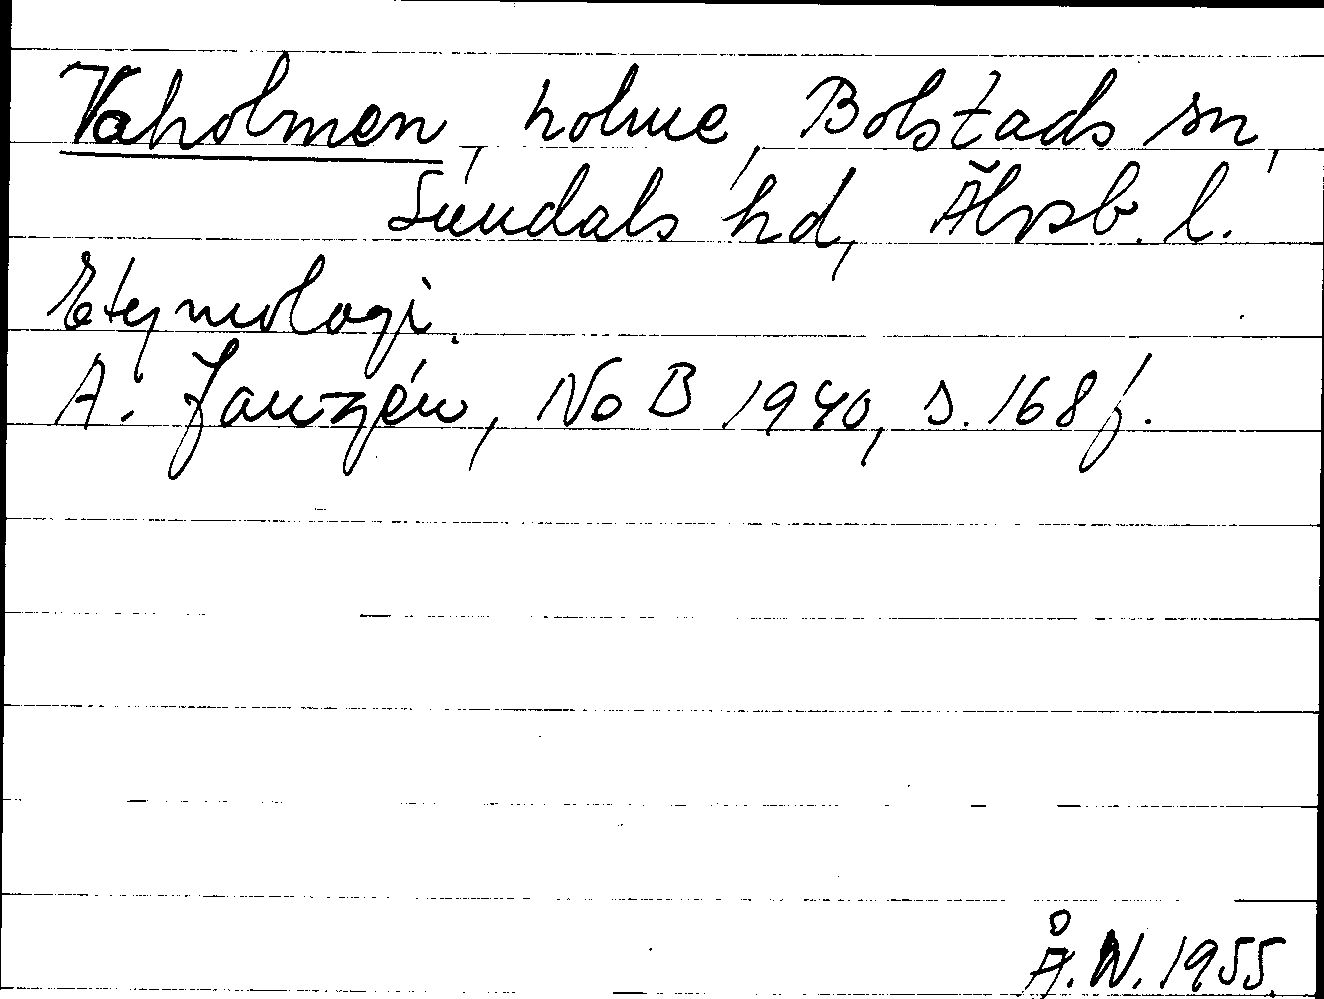 Vaholmen, holme, Bolstads sn,
Sundals hd, Älvsb. l.
Etymologi.
A. Janzén, NoB 1940, s. 168 f.
Å.W. 1955.